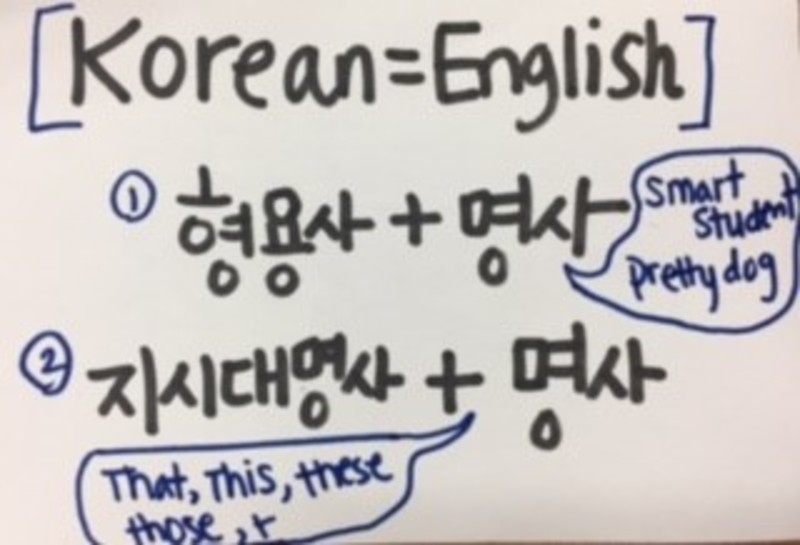 [Korean=English]
① 형용사 + 명사
smart
student
pretty dog
② 지시대명사 + 명사
That, This, these
those,